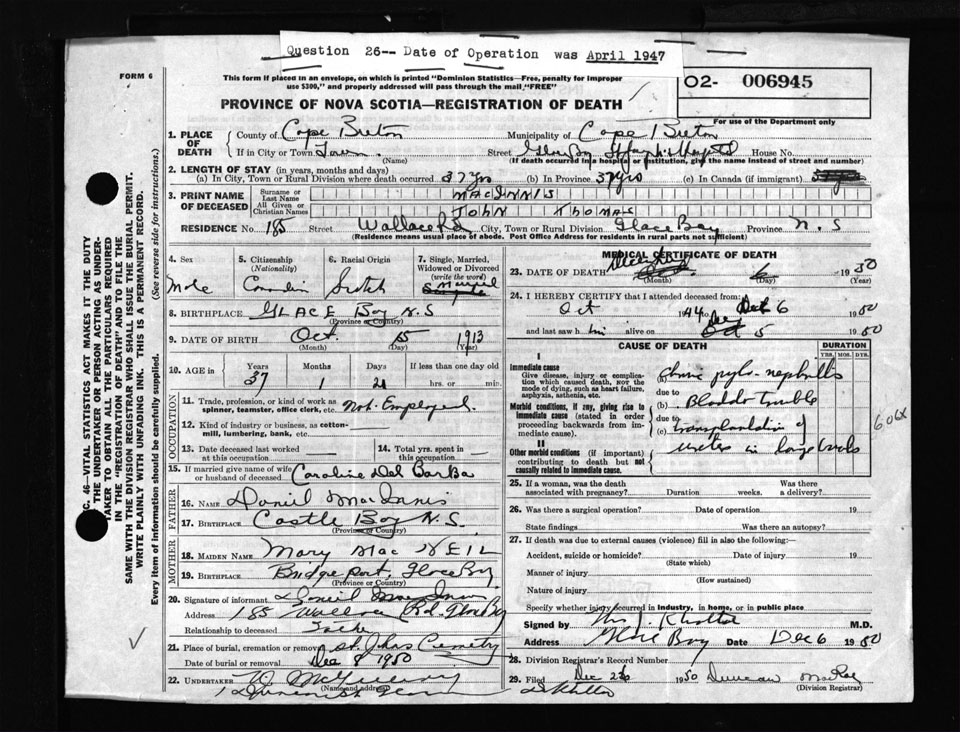 Question 26-- Date of Operation was April 1947
FORM 6
This form if placed in an envelope, on which is printed "Dominion Statistics—Free, penalty for improper
use $300," and properly addressed will pass through the mail "FREE"
O2- 006945
PROVINCE OF NOVA SCOTIA—REGISTRATION OF DEATH
For use of the Department only
1. PLACE OF DEATH
County of Cape Breton Municipality of Cape Breton
If in City or Town Town (Name) Street Glace Bay St Joseph's Hospital House No.
(If death occurred in a hospital or institution, give the name instead of street and number)
2. LENGTH OF STAY (in years, months and days)
(a) In City, Town or Rural Division where death occurred 37 yrs (b) In Province 37 yrs (c) In Canada (if immigrant)
3. PRINT NAME OF DECEASED
Surname or Last Name MACINNIS
All Given or Christian Names JOHN THOMAS
RESIDENCE No. 185 Street Wallace Rd. City, Town or Rural Division Glace Bay Province N. S
(Residence means usual place of abode. Post Office Address for residents in rural parts not sufficient)
4. Sex Male
5. Citizenship (Nationality) Canadian
6. Racial Origin Scotch
7. Single, Married, Widowed or Divorced (write the word) Married
8. BIRTHPLACE GLACE Bay N.S
(Province or Country)
9. DATE OF BIRTH Oct. 15 1913
(Month) (Day) (Year)
10. AGE in Years 37 Months 1 Days 21 If less than one day old hrs. or min.
OCCUPATION
11. Trade, profession, or kind of work as spinner, teamster, office clerk, etc. Not Employed.
12. Kind of industry or business, as cotton-mill, lumbering, bank, etc.
13. Date deceased last worked at this occupation
14. Total yrs. spent in this occupation
15. If married give name of wife or husband of deceased Caroline Del BarBa
FATHER
16. Name Daniel MacInnis
17. Birthplace Castle Bay N.S.
(Province or Country)
MOTHER
18. MAIDEN NAME Mary Mac NEIL
19. BIRTHPLACE Bridgeport, Glace Bay
(Province or Country)
20. Signature of informant Daniel MacInnis
Address 185 Wallace Rd. Glace Bay
Relationship to deceased Father
21. Place of burial, cremation or removal St. Johns Cemetery
Date of burial or removal Dec 8 1950
22. UNDERTAKER
(Name and address)
MEDICAL CERTIFICATE OF DEATH
23. DATE OF DEATH 6 1950
(Month) (Day) (Year)
24. I HEREBY CERTIFY that I attended deceased from:
Oct 1944 to Dec 6 1950
and last saw him alive on Dec 5 1950
CAUSE OF DEATH DURATION
YRS. MOS. DYS.
I
Immediate cause
Give disease, injury or complication which caused death, not the mode of dying, such as heart failure, asphyxia, asthenia, etc.
(a) Chronic pyelo-nephritis
due to
Morbid conditions, if any, giving rise to immediate cause (stated in order proceeding backwards from immediate cause).
(b) Bladder trouble
due to
(c) transplantation of
ureters in large bowels
II
Other morbid conditions (if important) contributing to death but not causally related to immediate cause.
606X
25. If a woman, was the death associated with pregnancy? Duration weeks. Was there a delivery?
26. Was there a surgical operation? Date of operation 19
State findings Was there an autopsy?
27. If death was due to external causes (violence) fill in also the following:—
Accident, suicide or homicide? Date of injury 19
(State which)
Manner of injury
(How sustained)
Nature of injury
Specify whether injury occurred in industry, in home, or in public place
Signed by M.D.
Address Glace Bay Date Dec 6 1950
28. Division Registrar's Record Number
29. Filed Dec 26 1950 Duncan MacRae
(Division Registrar)
C. 46—VITAL STATISTICS ACT MAKES IT THE DUTY
THE UNDERTAKER OR PERSON ACTING AS UNDER-
TAKER TO OBTAIN ALL THE PARTICULARS REQUIRED
IN THE "REGISTRATION OF DEATH" AND TO FILE THE
SAME WITH THE DIVISION REGISTRAR WHO SHALL ISSUE THE BURIAL PERMIT.
WRITE PLAINLY WITH UNFADING INK. THIS IS A PERMANENT RECORD.
Every item of information should be carefully supplied. (See reverse side for instructions.)